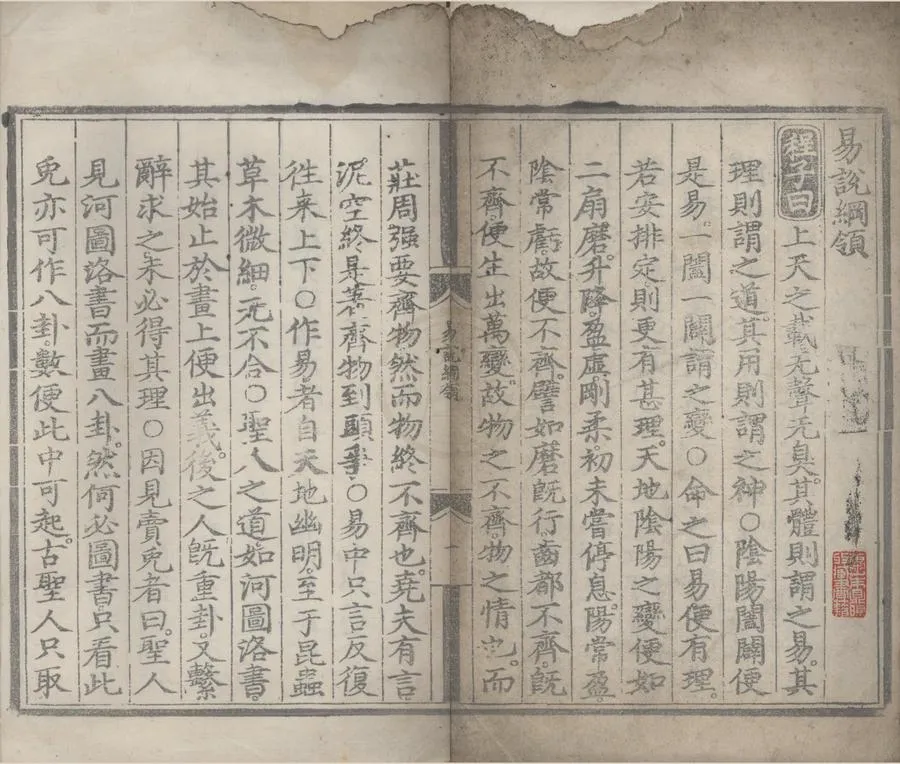 易說綱領
程子曰上天之載。无聲无臭。其體則謂之易。其
理則謂之道。其用則謂之神〇陰陽闔闢便
是易。一闔一闢謂之變〇命之曰易便有理。
若安排定。則更有甚理。天地陰陽之變便如
二扇磨。升降。盈虛。剛柔。初未嘗停息。陽常盈。
陰常虧。故便不齊。譬如磨既行。齒都不齊。既
不齊。便生出萬變。故物之不齊。物之情也。而
莊周强要齊物。然而物終不齊也。堯夫有言。
泥空終是著。齊物到頭爭〇易中只言反復
徃来上下〇作易者自天地幽明。至于昆蟲
草木微細。无不合〇聖人之道如河圖洛書。
其始止於畫上便出義。後之人既重卦。又繫
辭求之。未必得其理〇因見賣兎者曰。聖人
見河圖洛書而畫八卦。然何必圖書。只看此
兎亦可作八卦。數便此中可起。古聖人只取
易說綱領
一